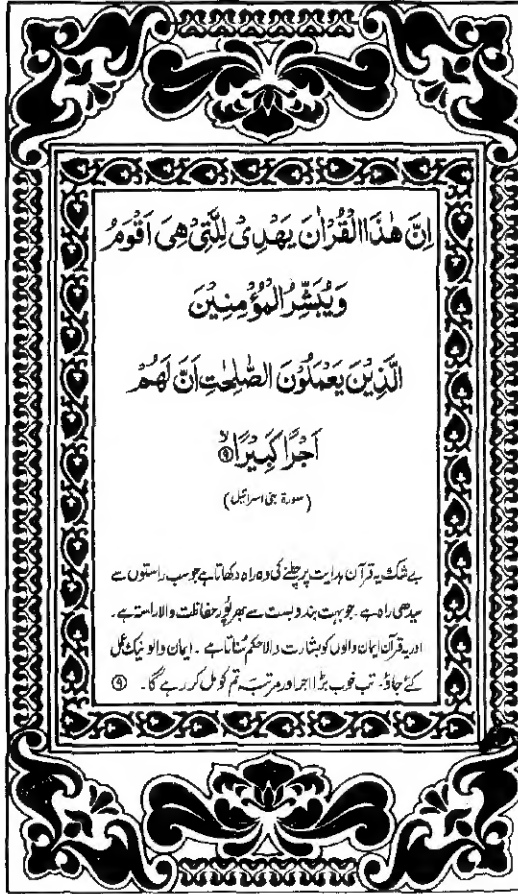 اِنَّ هٰذَا الْقُرْاٰنَ يَهْدِىْ لِلَّتِىْ هِىَ اَقْوَمُ
وَيُبَشِّرُ الْمُؤْمِنِيْنَ
الَّذِيْنَ يَعْمَلُوْنَ الصّٰلِحٰتِ اَنَّ لَهُمْ
اَجْرًا كَبِيْرًا ۙ۹
(سورۃ بنی اسرائیل)
بے شک یہ قرآن ہدایت پر چلنے کی وہ راہ دکھاتا ہے جو سب راستوں سے
سیدھی راہ ہے۔ جو بہت بندوبست سے بھر پُور حفاظت والا راستہ ہے۔
اور یہ قرآن ایمان والوں کو بشارت والا حکم سُناتا ہے۔ ایمان والو نیک عمل
کئے جاؤ۔ تب خوب بڑا اجر اور مرتبہ تم کو مل کر رہے گا۔ ۹